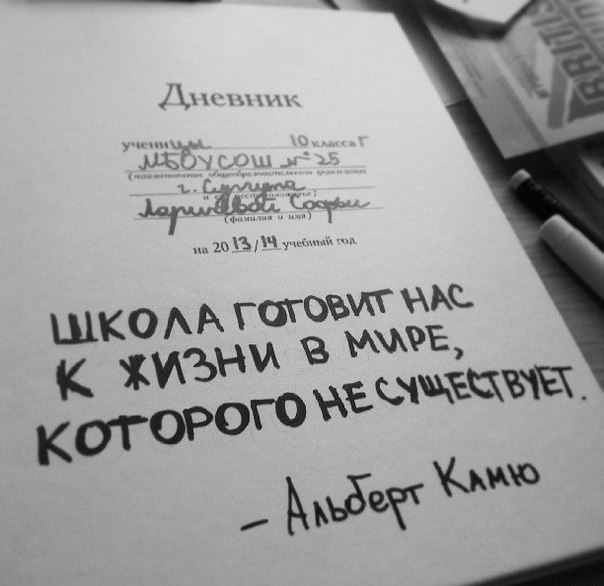 Дневник
ученицы 10 класса Г
МБОУСОШ №25
(наименование общеобразовательного учреждения
г. Сургута
Софьи
(фамилия и имя)
на 2013/14 учебный год
ШКОЛА ГОТОВИТ НАС
К ЖИЗНИ В МИРЕ,
КОТОРОГО НЕ СУЩЕСТВУЕТ.
– Альберт Камю
BRITISH